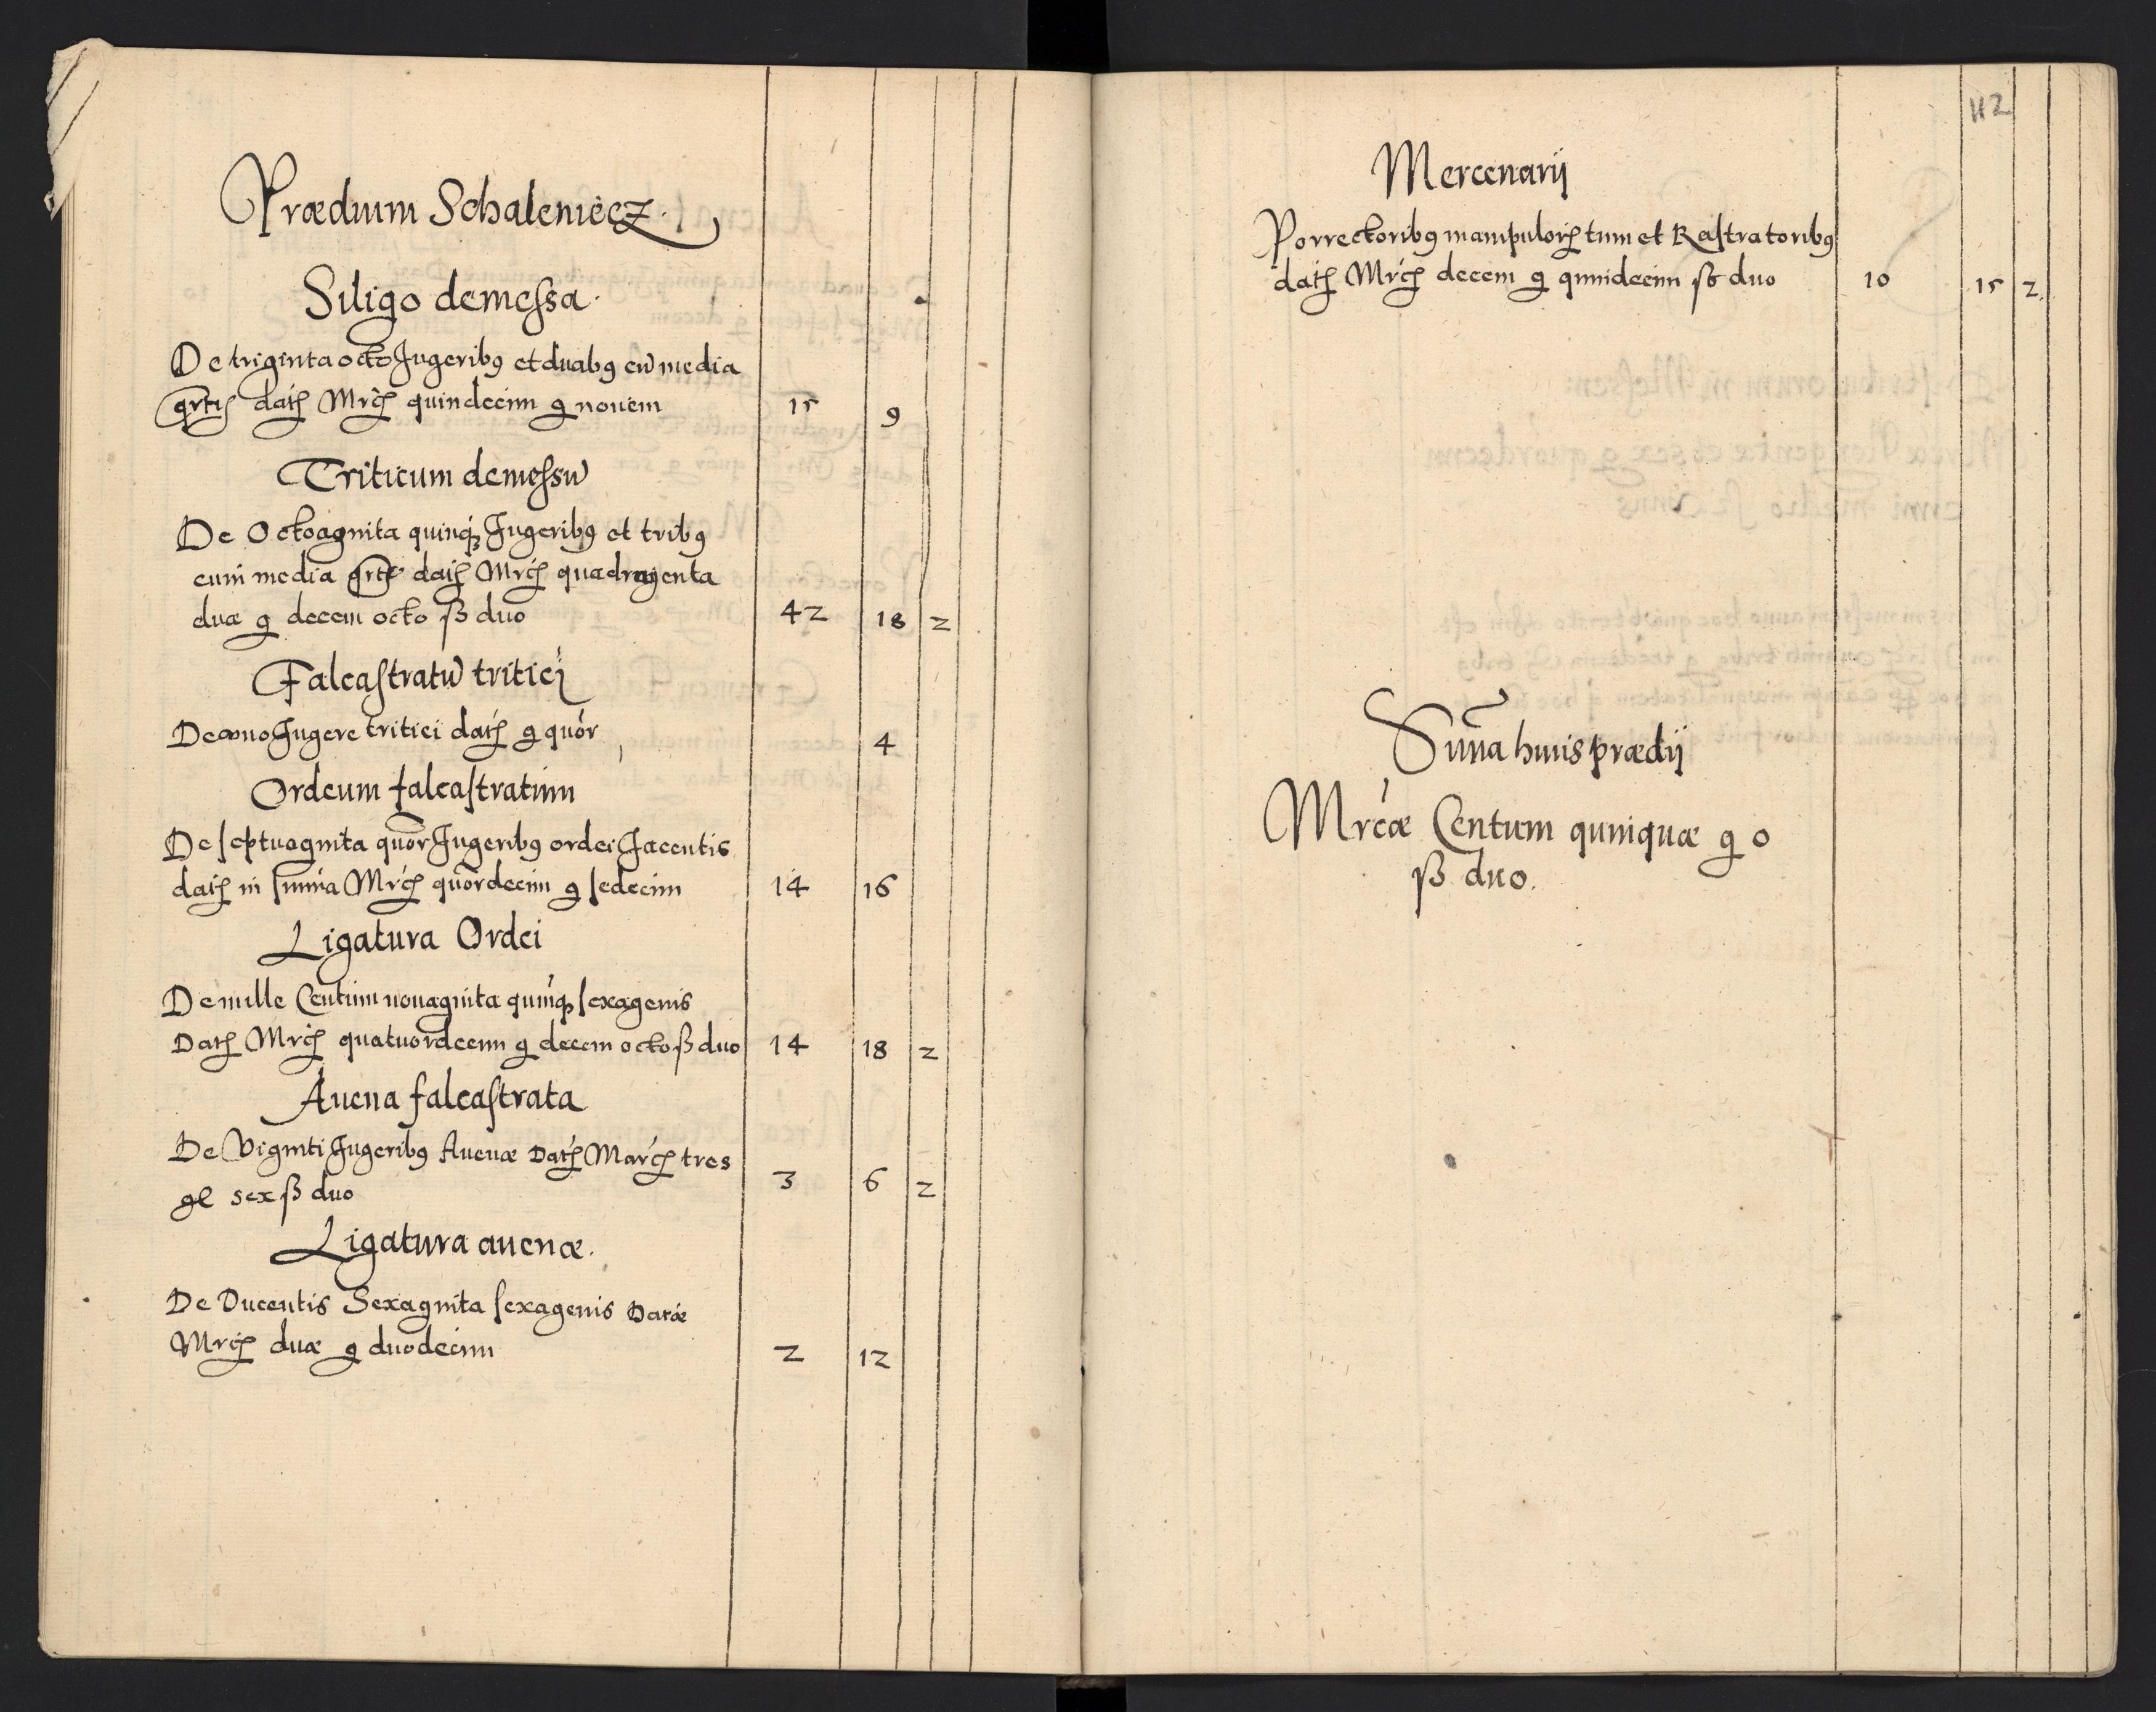 Prædium Schaleniecz.
Siligo demessa.
De triginta octo Jugeribꝰ et duabꝰ cū media
qrtis datꝭ Mrcꝭ quindecim g nouem 15 9
Triticum demessū
De Octoaginta quinqꝫ Jugeribꝰ et tribꝰ
cum media qrtꝭ datꝭ Mrcꝭ quadragenta
duæ g decem octo ß duo 42 18 2
Falcastratū tritici
De uno Jugere tritici datꝭ g quor 4
Ordeum falcastratum
De septuaginta quor Jugeribꝰ ordei Jacentis
datꝭ in summa Mrcꝭ quordecim g sedecim 14 16
Ligatura Ordei
De mille Centum nonaginta quinqꝫ sexagenis
Datꝭ Mrcꝭ quatuordecim g decem octo ß duo 14 18 2
Auena falcastrata
De Viginti Jugeribꝰ Auenæ Datꝭ Marcꝭ tres
gl sex ß duo 3 6 2
Ligatura auenæ.
De Ducentis Sexaginta sexagenis Datæ
Mrcꝭ duæ g duodecim 2 12
112
Mercenarij
Porrectoribꝰ manipulorꝭ tum et Rastratoribꝰ
datꝭ Mrcꝭ decem g quindecim ß duo 10 15 2
Suma huius prædij
Mrcæ Centum quinquæ g o
ß duo.